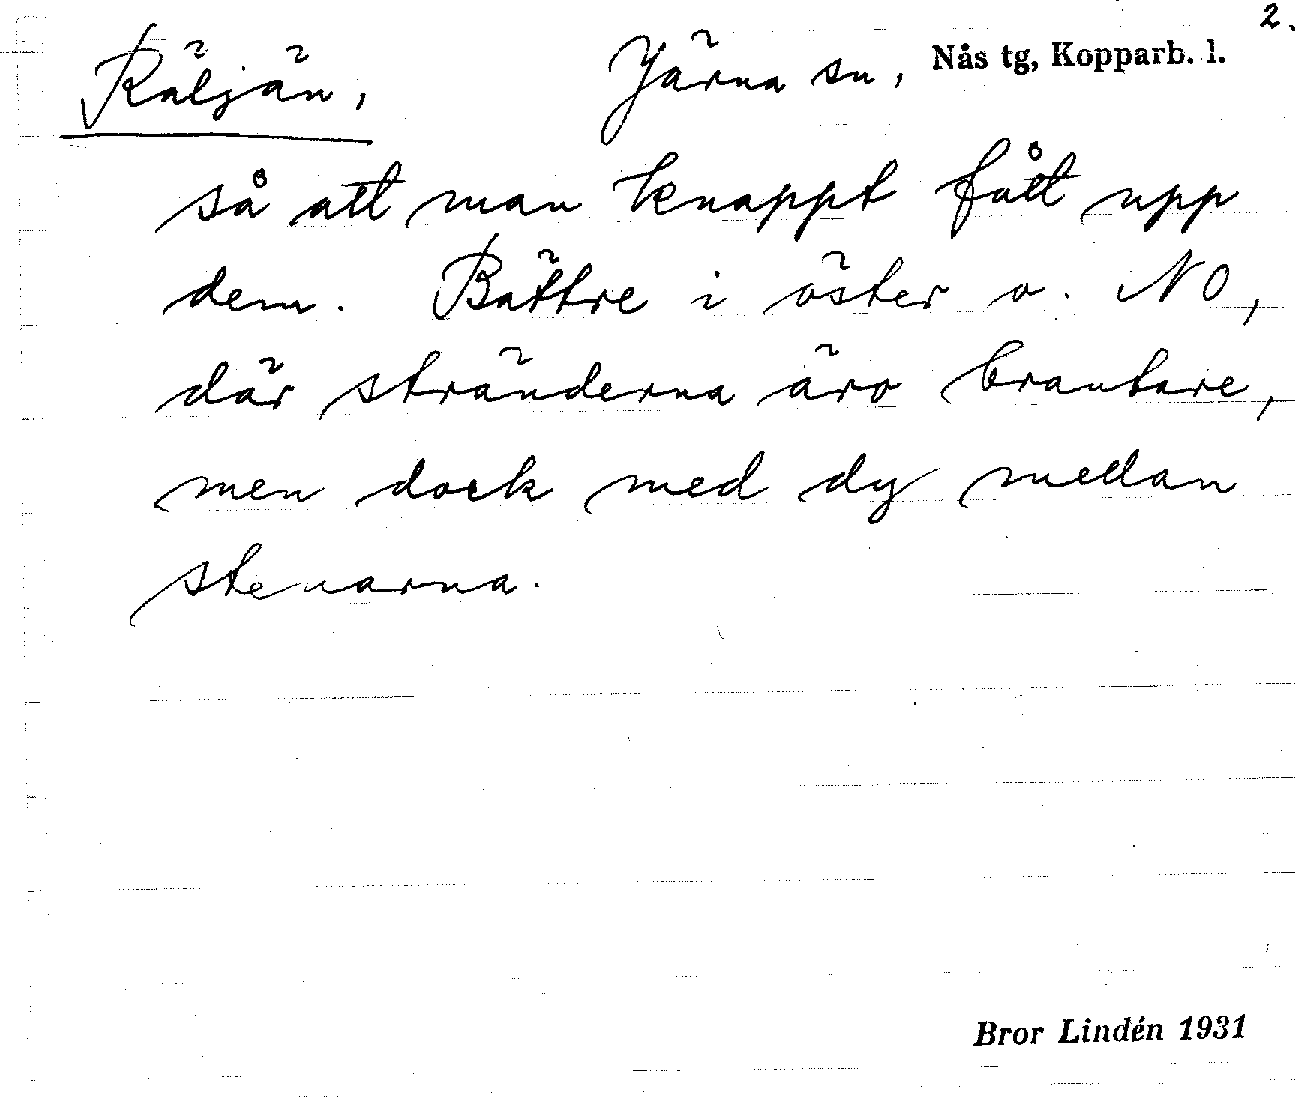 2.
Räljän, Järna sn, Nås tg, Kopparb. l.
så att man knappt fått upp
dem. Bättre i öster o. NO,
där stränderna äro brantare,
men dock med dy mellan
stenarna.
Bror Lindén 1931